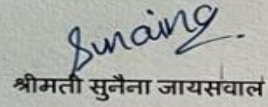 Sunaina.
श्रीमती सुनैना जायसवाल